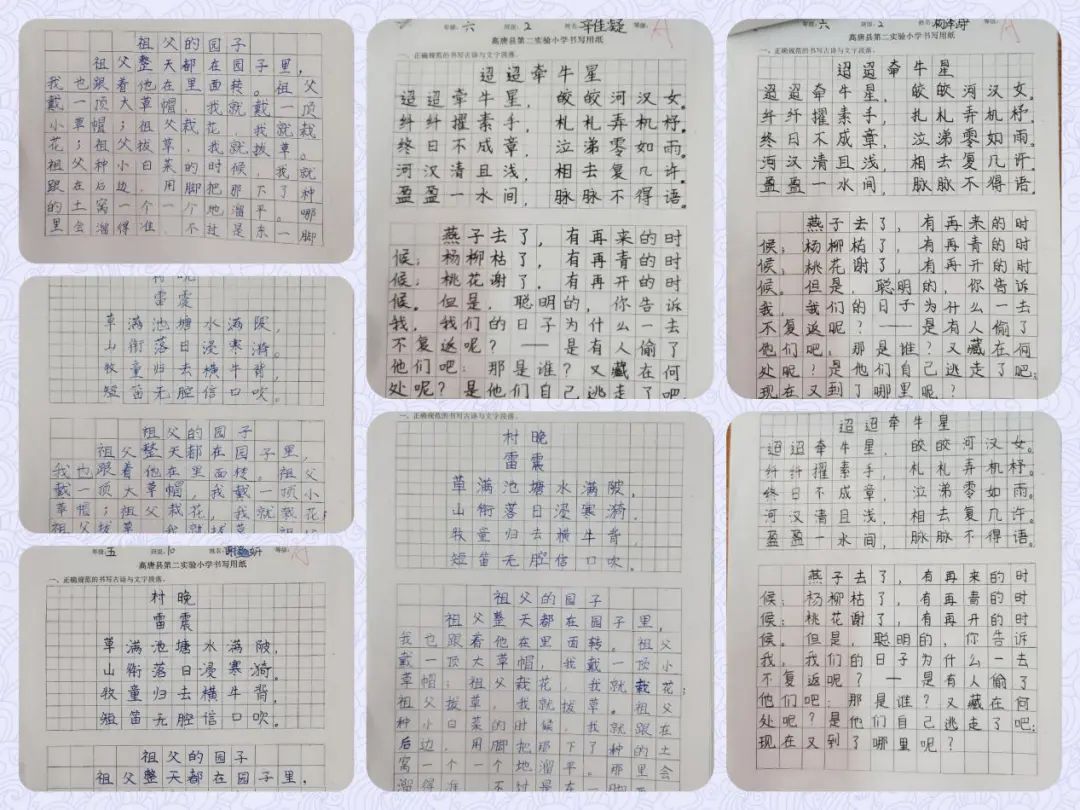 祖父的园子
祖父整天都在园子里，
我也跟着他在里面转。祖父
戴一顶大草帽，我就戴一顶
小草帽；祖父栽花，我就栽
花；祖父拔草，我就拔草。
祖父种小白菜的时候，我就
跟在后边，用脚把那下了种
的土窝一个一个地溜平。哪
里会溜得准，不过是东一脚
村晚
雷震
草满池塘水满陂，
山衔落日浸寒漪。
牧童归去横牛背，
短笛无腔信口吹。
祖父的园子
祖父整天都在园子里，
我也跟着他在里面转。祖父
戴一顶大草帽，我戴一顶小
草帽；祖父栽花，我就栽花；
祖父拔草，我就拔草。祖父
年级：五 班级：10 姓名： 等级：
高唐县第二实验小学书写用纸
一、正确规范的书写古诗与文字段落。
村晚
雷震
草满池塘水满陂，
山衔落日浸寒漪。
牧童归去横牛背，
短笛无腔信口吹。
祖父的园子
祖父整天都在园子里，
年级：六 班级：2 姓名：辛佳凝 等级：
高唐县第二实验小学书写用纸
一、正确规范的书写古诗与文字段落。
迢迢牵牛星
迢迢牵牛星，皎皎河汉女。
纤纤擢素手，札札弄机杼。
终日不成章，泣涕零如雨。
河汉清且浅，相去复几许。
盈盈一水间，脉脉不得语。
燕子去了，有再来的时
候；杨柳枯了，有再青的时
候；桃花谢了，有再开的时
候。但是，聪明的，你告诉
我，我们的日子为什么一去
不复返呢？——是有人偷了
他们吧：那是谁？又藏在何
处呢？是他们自己逃走了吧
一、正确规范的书写古诗与文字段落。
村晚
雷震
草满池塘水满陂，
山衔落日浸寒漪。
牧童归去横牛背，
短笛无腔信口吹。
祖父的园子
祖父整天都在园子里，
我也跟着他在里面转。祖父
戴一顶大草帽，我戴一顶小
草帽；祖父栽花，我就栽花；
祖父拔草，我就拔草。祖父
种小白菜的时候，我就跟在
后边，用脚把那下了种的土
窝一个一个地溜平。那里会
溜得准，不过是东一脚
年级：六 班级：2 姓名： 等级：
高唐县第二实验小学书写用纸
一、正确规范的书写古诗与文字段落。
迢迢牵牛星
迢迢牵牛星，皎皎河汉女。
纤纤擢素手，札札弄机杼。
终日不成章，泣涕零如雨。
河汉清且浅，相去复几许。
盈盈一水间，脉脉不得语。
燕子去了，有再来的时
候；杨柳枯了，有再青的时
候；桃花谢了，有再开的时
候。但是，聪明的，你告诉
我，我们的日子为什么一去
不复返呢？——是有人偷了
他们吧：那是谁？又藏在何
处呢？是他们自己逃走了吧：
现在又到了哪里呢？
迢迢牵牛星
迢迢牵牛星，皎皎河汉女。
纤纤擢素手，札札弄机杼。
终日不成章，泣涕零如雨。
河汉清且浅，相去复几许。
盈盈一水间，脉脉不得语。
燕子去了，有再来的时
候；杨柳枯了，有再青的时
候；桃花谢了，有再开的时
候。但是，聪明的，你告诉
我，我们的日子为什么一去
不复返呢？—是有人偷了
他们吧：那是谁？又藏在何
处呢？是他们自己逃走了吧：
现在又到了哪里呢？